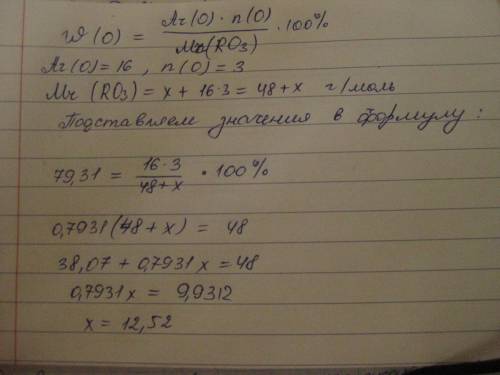 W(O) = Ar(O) · n(O) / Mr(RO3) · 100%
Ar(O) = 16 , n(O) = 3
Mr (RO3) = x + 16·3 = 48 + x г/моль
Подставляем значения в формулу :
79,31 = 16·3 / 48+x · 100%
0,7931(48 + x) = 48
38,07 + 0,7931x = 48
0,7931x = 9,9312
x = 12,52